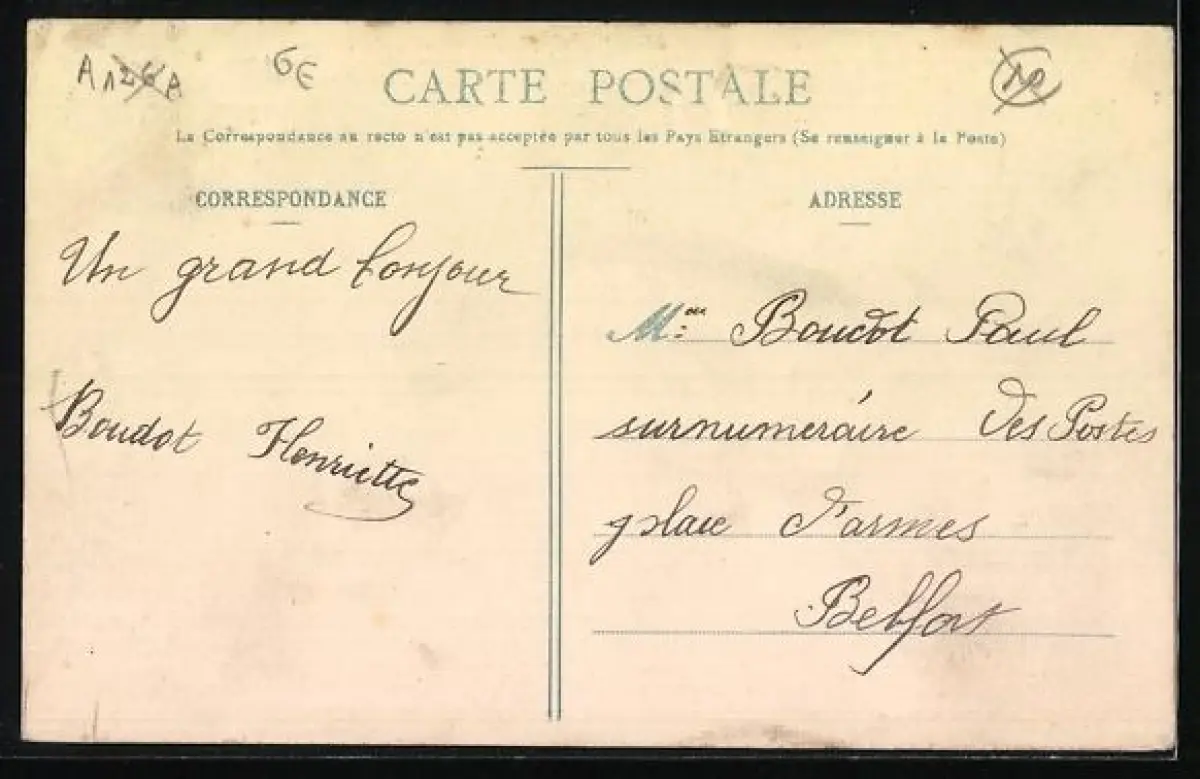 6€
CARTE POSTALE
La Correspondance au recto n'est pas acceptée par tous les Pays Etrangers (Se renseigner à la Poste)
CORRESPONDANCE
Un grand bonjour
Boudot Henriette
ADRESSE
M. Boudot Paul
surnuméraire des Postes
place d'armes
Belfort